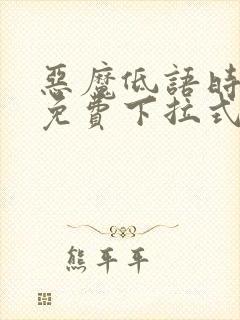 惡魔低語時
免費下拉式
熊平平